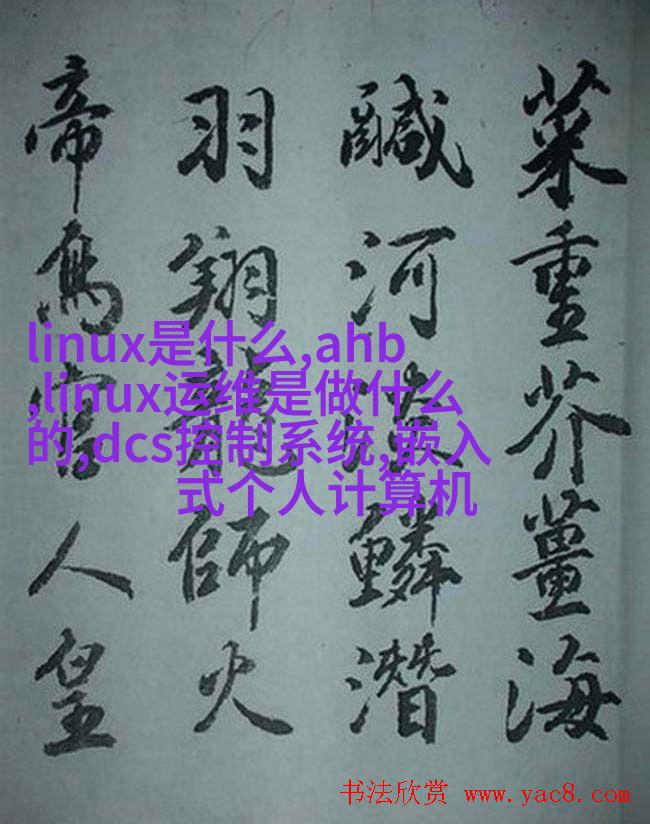 菜重芥薑海
鹹河淡鱗潛
羽翔龍師火
帝鳥官人皇
linux是什么,ahb
,linux运维是做什么
的,dcs控制系统,嵌入
式个人计算机
书法欣赏 www.yac8.com